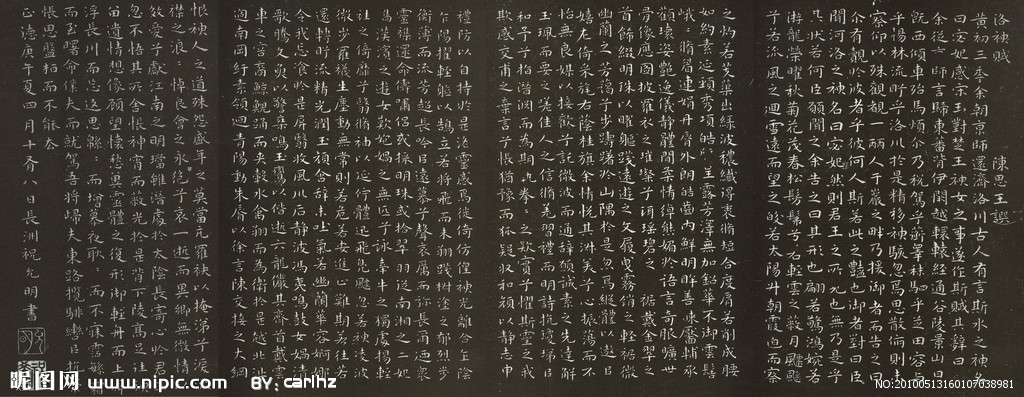 洛神賦 陳思王譔
黃初三季余朝京師還濟洛川古人有言斯水之神名
曰宓妃感宗玉對楚王神女之事遂作斯賦其辭曰
余從京師言歸東番背伊闕越轘轅經通谷陵景山日
既西傾車殆馬煩尒乃稅駕乎蘅皋秣駟乎芝田容與
乎楊林流眄乎洛川於是精移神駭忽焉思散俯則未
察仰以殊觀覩一麗人于巖之畔乃援御者而告之曰
尒有覿於彼者乎彼何人斯若此之豔也御者對曰臣
聞河洛之神名曰宓妃然則君王之所見也無乃是乎
其狀若何臣願聞之余告之曰其形也翩若驚鴻婉若
游龍榮曜秋菊花茂春松髣髴兮若輕雲之蔽月飄颻
兮若流風之迴雪遠而望之皎若太陽升朝霞迫而察
之灼若芙蕖出綠波穠纖得衷脩短合度肩若削成腰
如約素延頸秀項皓質呈露芳澤無加鉛華不御雲髻
峨〻脩眉連娟丹脣外朗皓齒內鮮明眸善睞靨輔承
顴瓌姿豔逸儀靜體閑柔情綽態媚於語言奇服曠世
骨像應圖披羅衣之璀粲兮珥瑤碧之華裾戴金翠之
首飾綴明珠以曜軀踐遠遊之文履曳霧綃之輕裾微
幽蘭之芳藹兮步踟躕於山隅於是忽焉縱體以遨以
嬉左倚采旄右蔭桂旗攘皓腕於神滸兮采湍瀨之玄芝
余情悅其淑美兮心振蕩而不怡無良媒以接歡兮託微波而通辭願誠素之先達解
玉珮而要之嗟佳人之信脩羌習禮而明詩抗瓊珶以
和予兮指潛淵而為期執眷〻之款實兮懼斯靈之我
欺感交甫之棄言兮悵猶豫而狐疑收和顏以靜志申
禮防以自持於是洛靈感焉徙倚仿偟神光離合乍陰
乍陽竦輕軀以鶴立若將飛而未翔踐椒塗之郁烈步
衡薄而流芳超長吟以遠慕兮聲哀厲而彌長爾迺衆
靈雜遝命儔嘯侶或採明珠或拾翠羽從南湘之二妃
攜漢濱之遊女歎匏媧之無匹兮詠牽牛之獨處揚輕
袿之倚靡兮翳脩袖以延佇體迅飛鳧飄忽若神凌波
微步羅襪生塵動無常則若危若安進止難期若往若
還轉眄流精光潤玉顏含辭未吐氣若幽蘭華容婀娜
令我忘飡於是屏翳收風川后靜波馮夷鳴鼓女媧清
歌騰文魚以警乘鳴玉鸞以偕逝六龍儼其齊首載雲
車之容裔鯨鯢踊而夾轂水禽翔而為衛於是越北沚
過南岡紆素領迴清陽動朱脣以徐言陳交接之大綱
恨神人之道殊怨盛年之莫當亢羅袂以掩涕兮淚流
襟之浪〻悼良會之永絕兮哀一逝而異鄉無微情以
效愛兮獻江南之明璫雖潛處於太陰長寄心於君王
忽不悟其所舍悵神宵而蔽光於是背下陵高足往神
留遺情想像顧望懷愁冀靈體之復形御輕舟而上
泝浮長川而忘返思緜〻而增慕夜耿〻而不寐霑繁霜
而至曙命僕夫而就駕吾將歸夫東路攬騑轡以抗策
悵思盤桓而不能去
正德庚午夏四月十有八日長洲祝允明書
昵图网 www.nipic.com BY: carlhz
NO:20100513160107038981